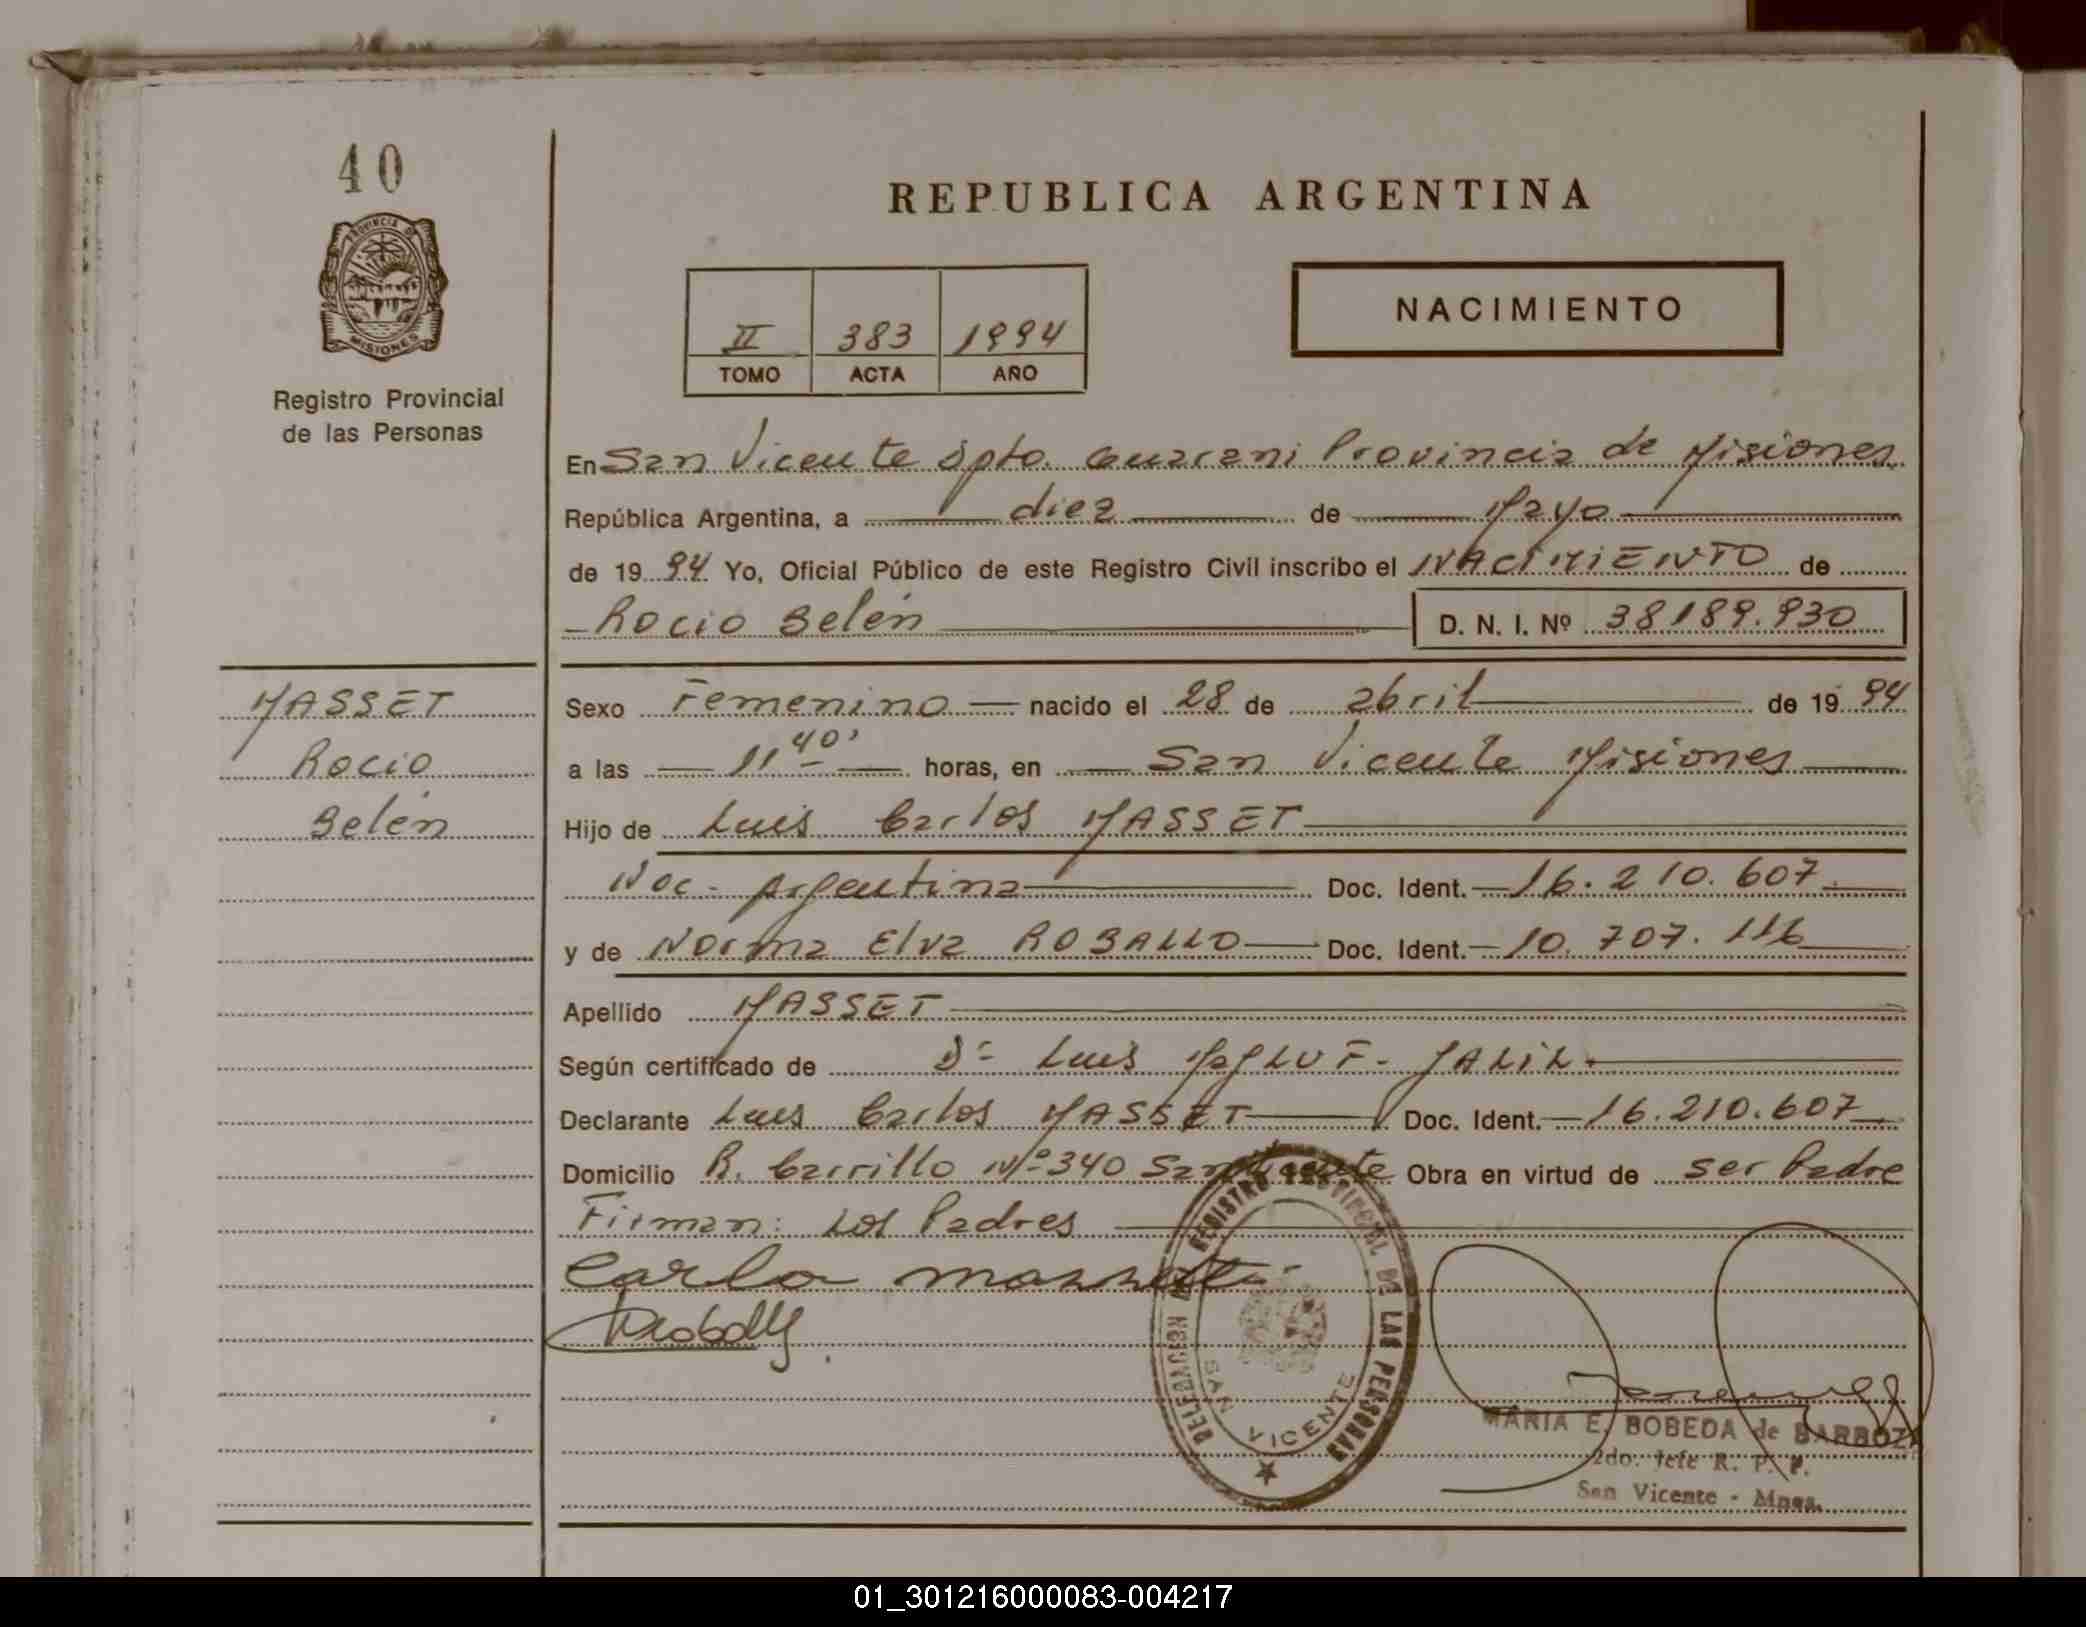 40
PROVINCIA DE
MISIONES
Registro Provincial
de las Personas
REPUBLICA ARGENTINA
II 383 1994
TOMO ACTA AÑO
NACIMIENTO
En San Vicente Dpto. Guarani Provincia de Misiones
República Argentina, a diez de Mayo
de 1994 Yo, Oficial Público de este Registro Civil inscribo el NACIMIENTO de
Rocio Belén D. N. I. Nº 38189.930
MASSET
Rocio
Belén
Sexo Femenino nacido el 28 de abril de 1994
a las 11 40' horas, en San Vicente Misiones
Hijo de Luis Carlos MASSET
Nac. Argentina Doc. Ident. 16.210.607
y de Norma Elva ROBALLO Doc. Ident. 10.707.116
Apellido MASSET
Según certificado de Dr Luis JALIL.
Declarante Luis Carlos MASSET Doc. Ident. 16.210.607
Domicilio R. Carrillo Nº 340 San Vicente Obra en virtud de ser Padre
Firman: Los Padres
DELEGACION REGISTRO PROVINCIAL DE LAS PERSONAS
SAN VICENTE
MARIA E. BOBEDA de BARBOZA
2do. Jefe R. P. P.
San Vicente - Mnes.
01_301216000083-004217